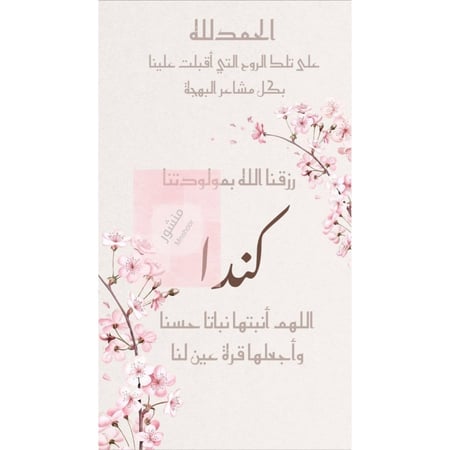 الحمدلله
على تلك الروح التي أقبلت علينا
بكل مشاعر البهجة
رزقنا الله بمولودتنا
كندا
منشور
Menshoor
اللهم أنبتها نباتا حسنا
وأجعلها قرة عين لنا